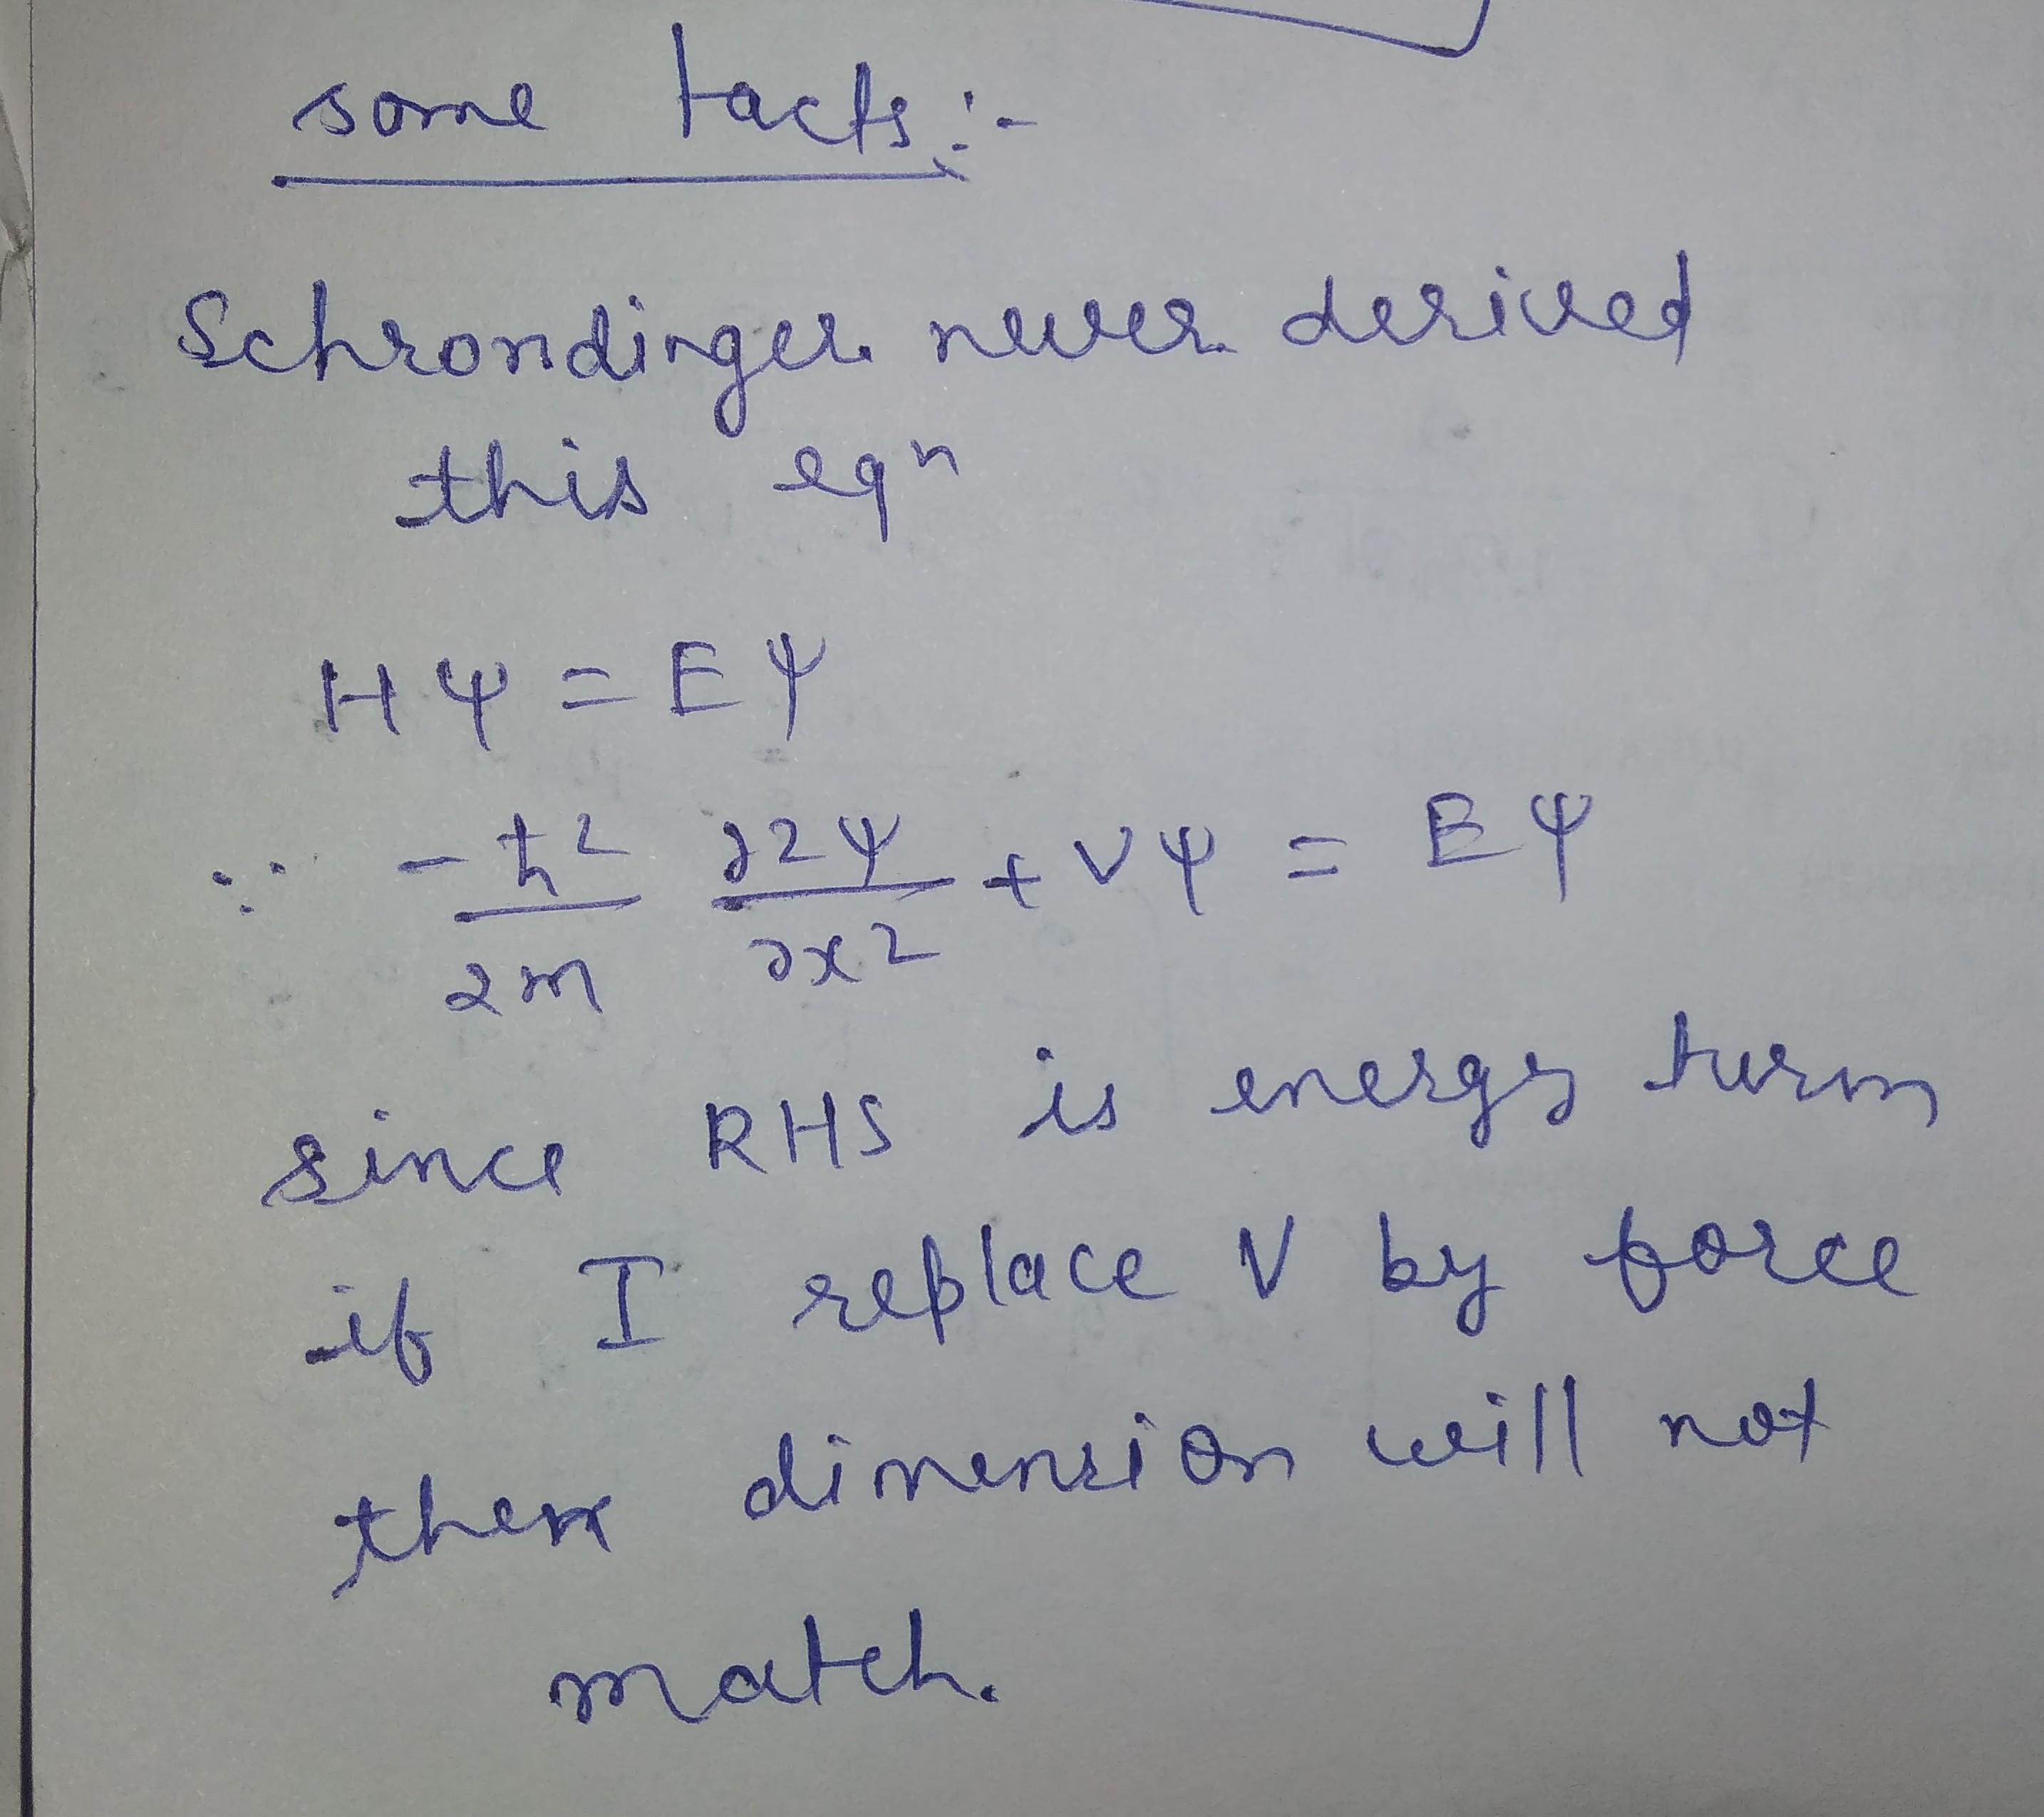 some facts :-
Schrondinger never derived
this eqⁿ
Hψ = Eψ
∵ -ħ²/2m ∂2ψ/∂x2 + Vψ = Eψ
since RHS is energy term
if I replace V by force
then dimension will not
match.